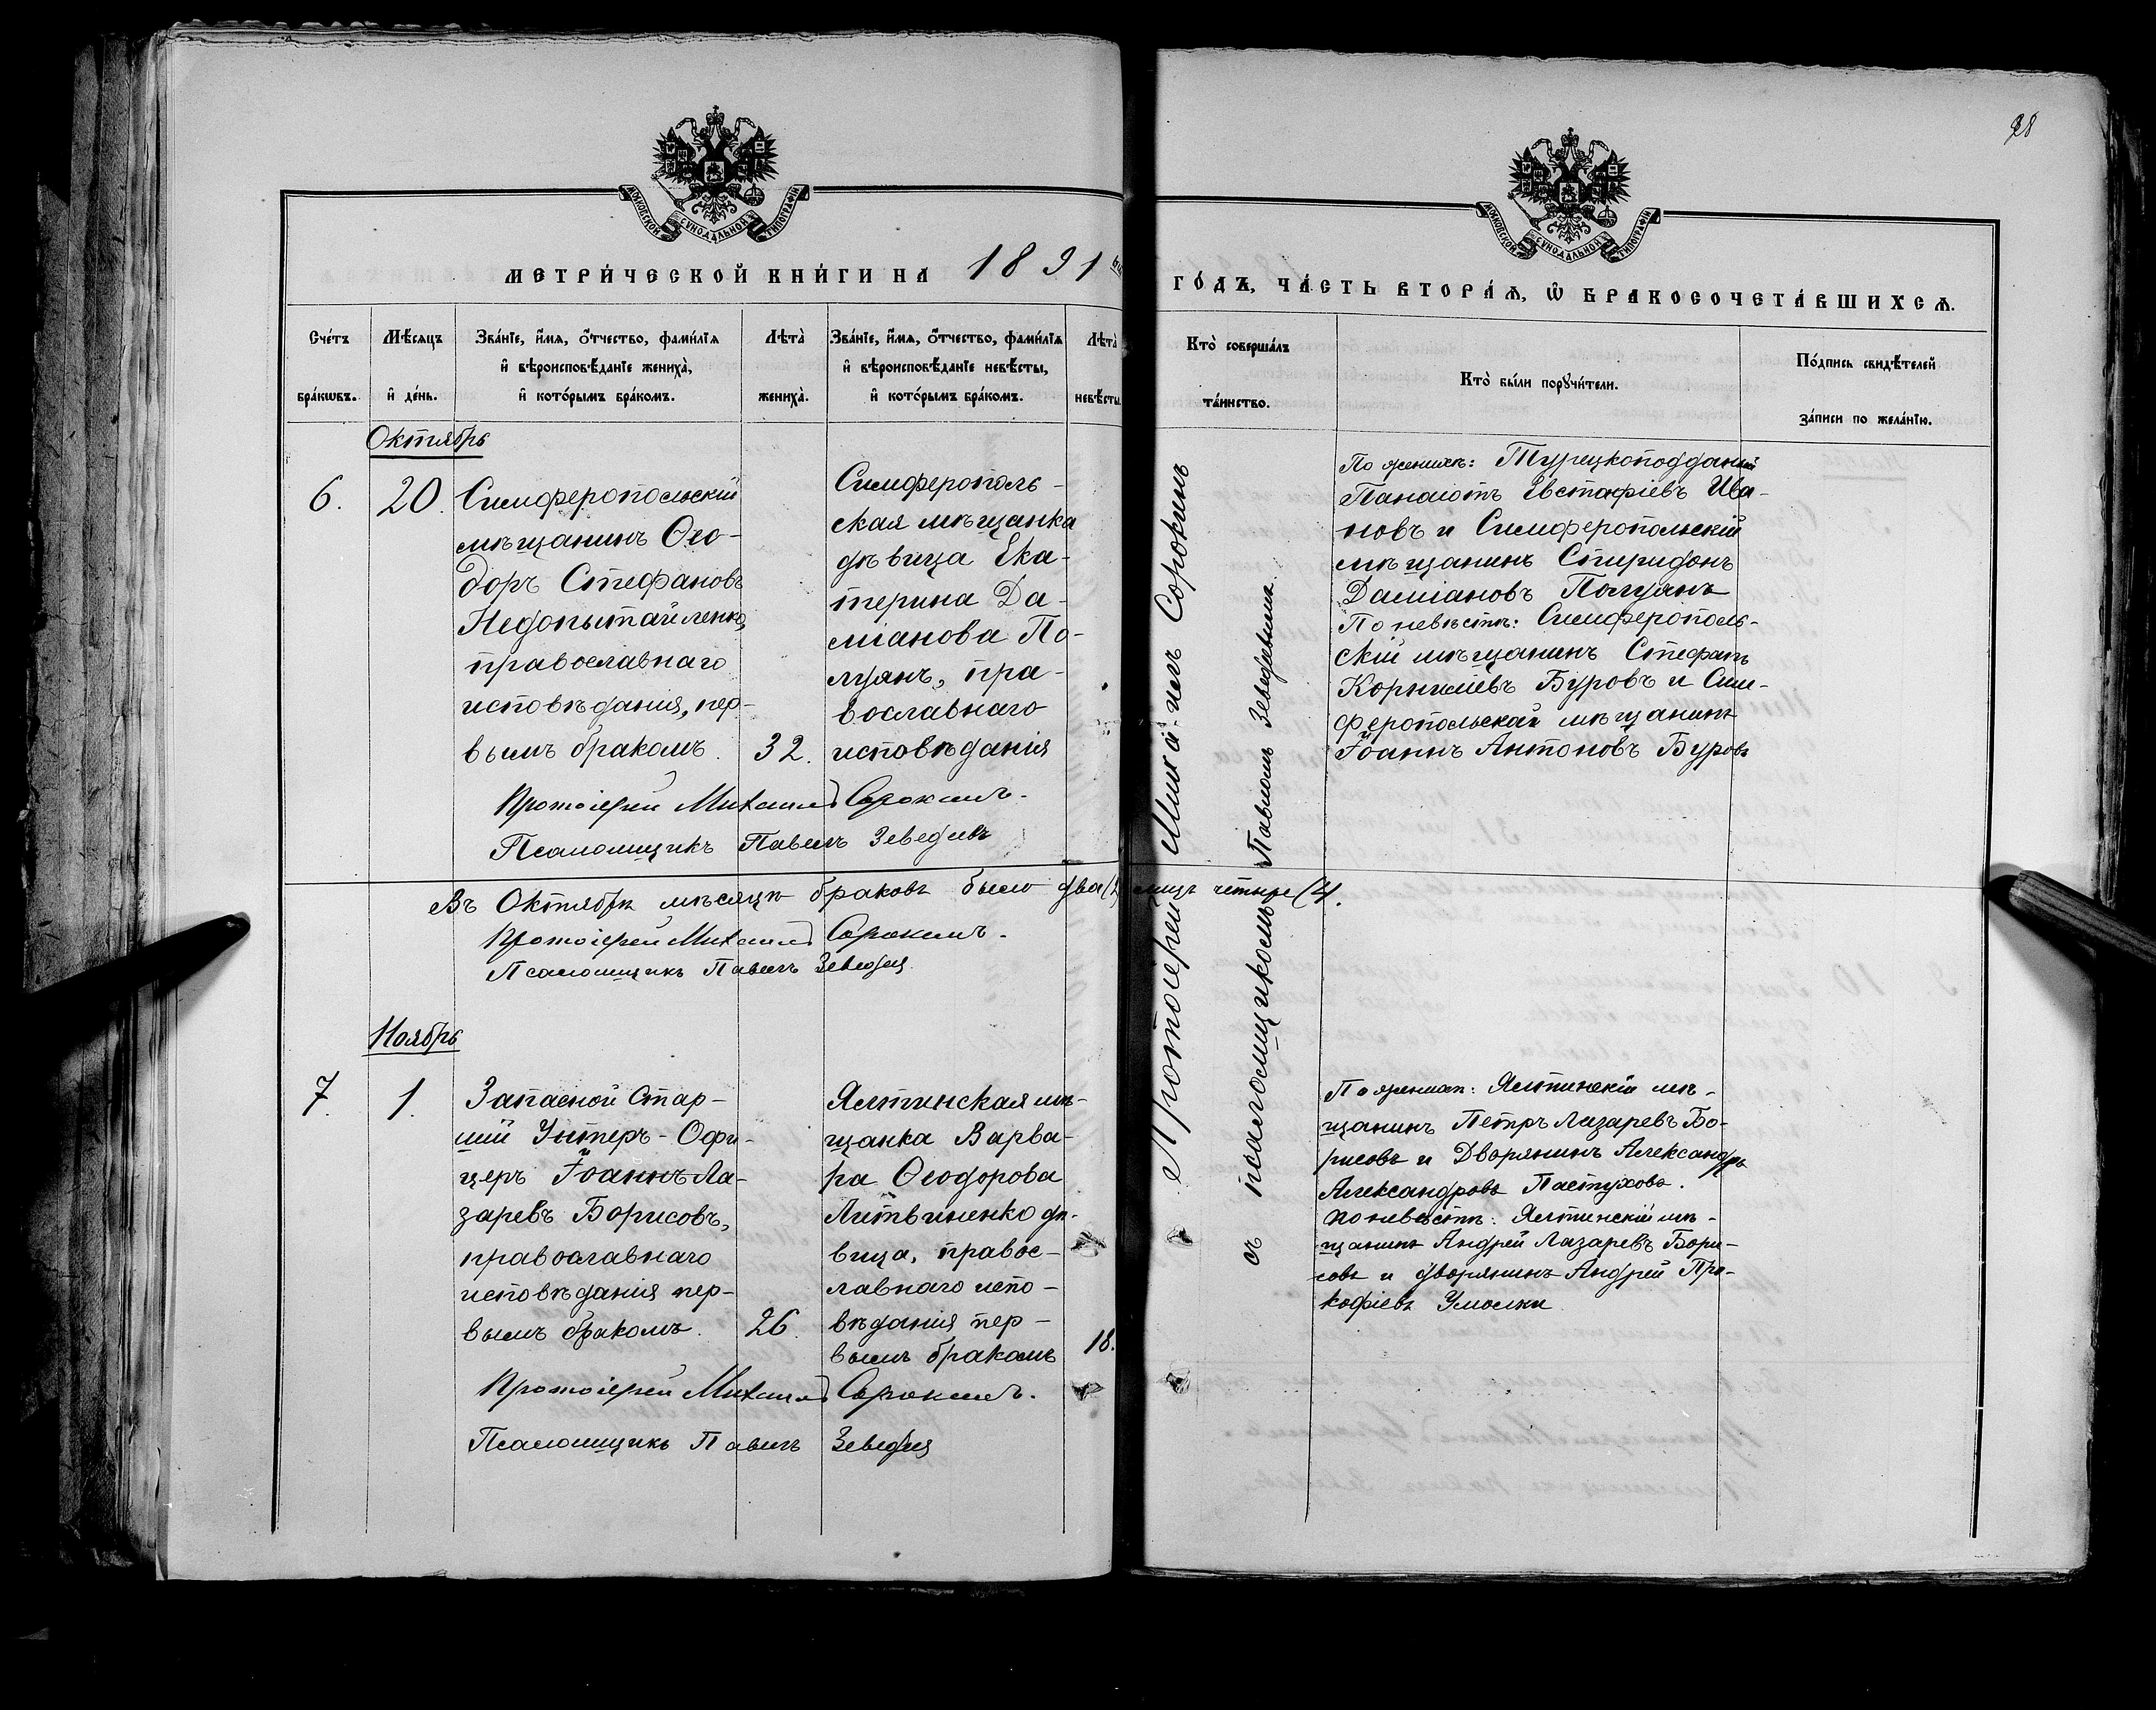 98
МОСКОВСКОЙ СѴНОДАЛЬНОЙ ТИПОГРАФІИ
МОСКОВСКОЙ СѴНОДАЛЬНОЙ ТИПОГРАФІИ
МЕТРИ́ЧЕСКОЙ КНИ́ГИ НА 1891 ый ГО́ДЪ, ЧА́СТЬ ВТОРА́Ѧ, Ѽ БРАКОСОЧЕТА́ВШИХСѦ.
Сче́тъ
бра́кѡвъ.
Мѣ́сяцъ
и҆ де́нь.
Зва́нїе, и҆́мѧ, ѻ҆́тчество, фами́лїѧ
и҆ вѣроисповѣ́данїе жениха̀,
и҆ кото́рымъ бра́комъ.
Лѣта̀
жениха̀.
Зва́нїе, и҆́мѧ, ѻ҆́тчество, фами́лїѧ
и҆ вѣроисповѣ́данїе невѣ́сты,
и҆ кото́рымъ бра́комъ.
Лѣта̀
невѣ́сты.
Кто̀ соверша́лъ
та́инство.
Кто̀ бы́ли порꙋчи́тели.
По́дпись свидѣ́телей
за́писи по жела́нїю.
Октябрь
6.
20.
Симферопольскій
мѣщанинъ Ѳео-
доръ Стефановъ
Недопытайленко,
православнаго
исповѣданія, пер-
вымъ бракомъ.
32.
Симферополь-
ская мѣщанка
дѣвица Ека-
терина Да-
міанова По-
луянъ, пра-
вославнаго
исповѣданія
Протоіерей Михаилъ Сорокинъ
съ псаломщикомъ Павломъ Зеведѣевымъ.
По женихѣ: Турецкоподданый
Панаіотъ Евстафіевъ Ива-
новъ и Симферопольскій
мѣщанинъ Спиридонъ
Даміановъ Полуянъ
По невѣстѣ: Симферополь-
скій мѣщанинъ Стефанъ
Корниліевъ Буровъ и Сим-
феропольскай мѣщанинъ
Іоаннъ Антоновъ Буровъ
Протоіерей Михаилъ Сорокинъ.
Псаломщикъ Павелъ Зеведѣевъ
Въ Октябрѣ мѣсяцѣ браковъ было два (2) лицъ четыре (4).
Протоіерей Михаилъ Сорокинъ.
Псаломщикъ Павелъ
Ноябрь
7.
1.
Запасной Стар-
шій Унтеръ-Офи-
церъ Іоаннъ Ла-
заревъ Борисовъ,
православнаго
исповѣданія пер-
вымъ бракомъ.
26.
Ялтинская мѣ-
щанка Варва-
ра Ѳеодорова
Литвиненко дѣ-
вица, правос-
лавнаго испо-
вѣданія пер-
вымъ бракомъ
18.
По женихѣ: Ялтинскій мѣ-
щанинъ Петръ Лазаревъ Бо-
рисовъ и Дворянинъ Александръ
Александровъ Пастуховъ.
По невѣстѣ: Ялтинскій мѣ-
щанинъ Андрей Лазаревъ Бори-
совъ и дворянинъ Андрей Про-
кофіевъ
Протоіерей Михаилъ Сорокинъ.
Псаломщикъ Павелъ